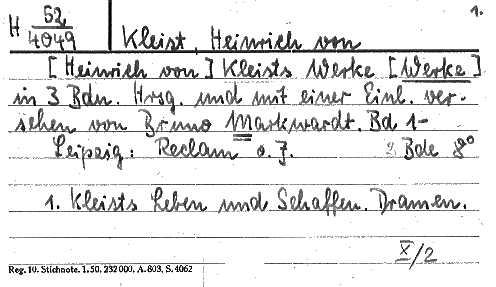 1.
H 52/4049 Kleist, Heinrich von
[Heinrich von] Kleists Werke [Werke]
in 3 Bdn. Hrsg. und mit einer Einl. ver-
sehen von Bruno Markwardt. Bd 1-
Leipzig: Reclam o. J. 2 Bde 8°
1. Kleists Leben und Schaffen. Dramen.
X/2
Reg. 10. Stichnote. 1. 50. 232000. A. 803. S. 4062